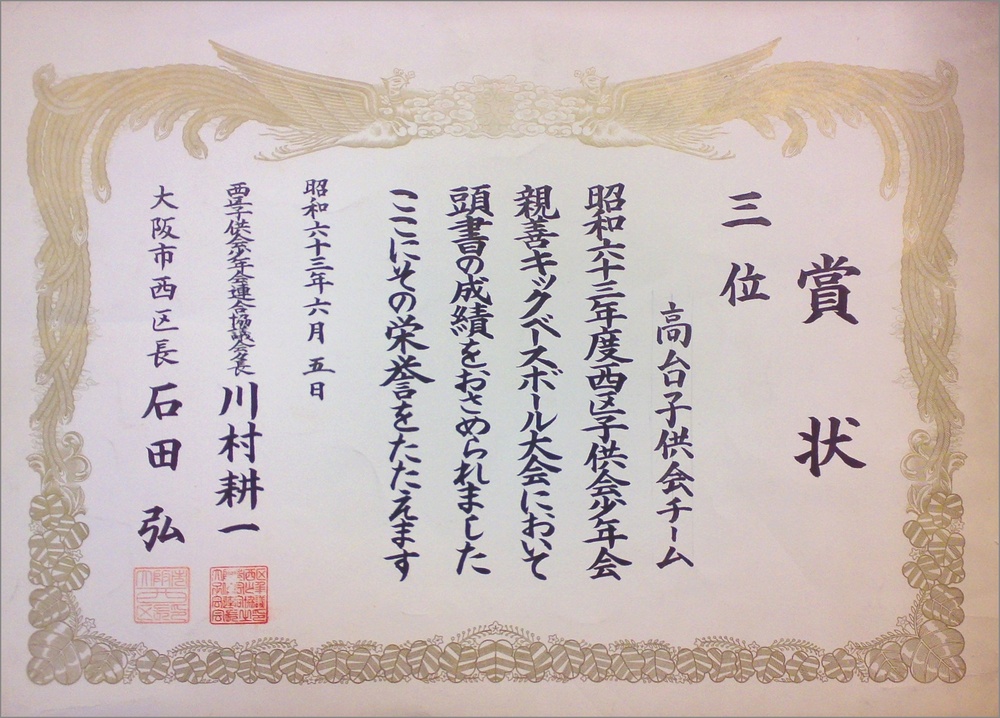 賞状
三位
高台子供会チーム
昭和六十三年度西区子供会少年会
親善キックベースボール大会において
頭書の成績をおさめられました
ここにその栄誉をたたえます
昭和六十三年六月五日
西区子供会少年会連合協議会々長 川村耕一
大阪市西区長 石田弘